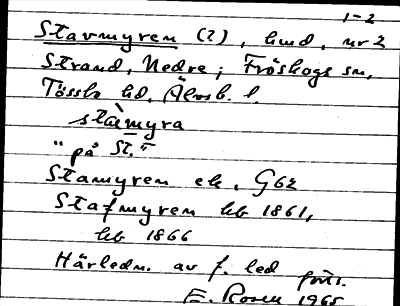 1-2
Stavmyren (2), hmd, nr 2
Strand, Nedre; Fröskogs sn,
Tössbo hd, Älvsb. l.
stàmyra
"på St."
Stamyren ek, G62
Stafmyren hb 1861,
hb 1866
Härledn. av f. led förs.
E. Rosen 1965